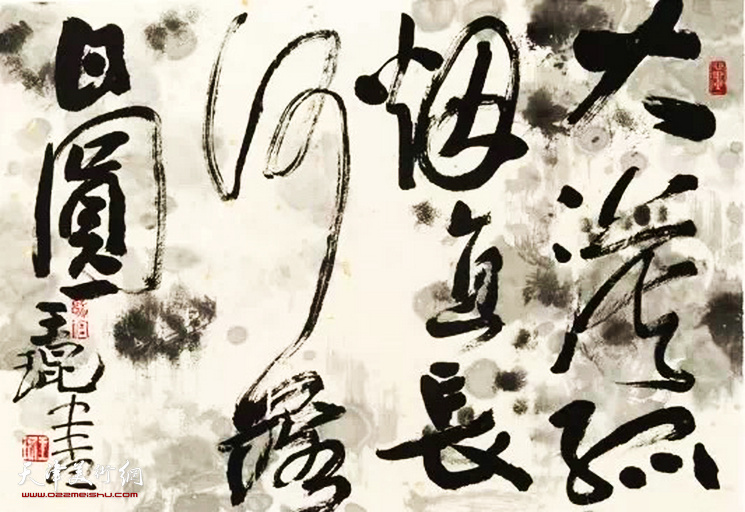 大漠孤
烟直长
河落
日圆
王琨书
天津美術網
www.022meishu.com